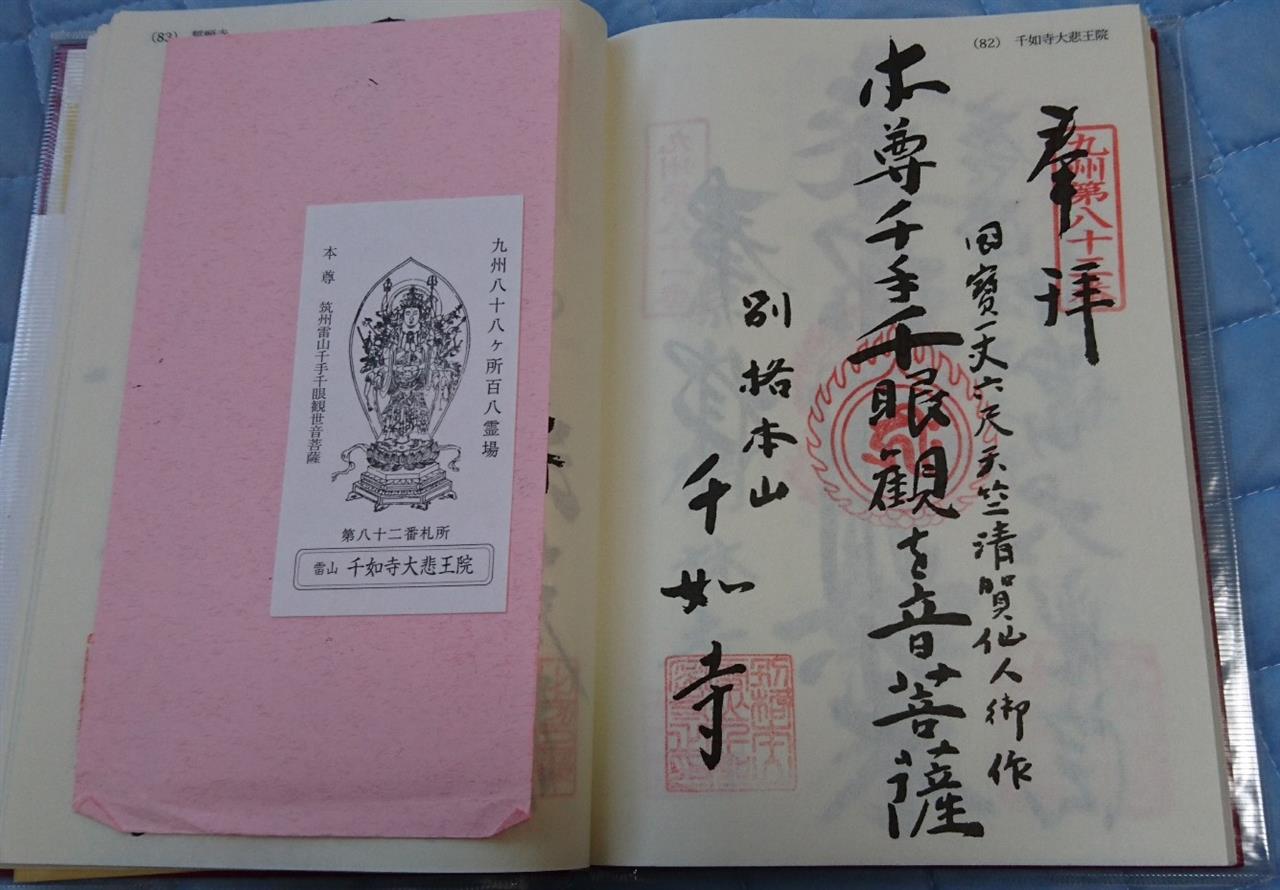 (82) 千如寺大悲王院
奉拝
九州第八十二番
国寶一丈六尺天竺清賀仙人御作
本尊千手千眼観世音菩薩
別格本山
千如寺
(83)
九州八十八ヶ所百八霊場
本尊 筑州雷山千手千眼観世音菩薩
第八十二番札所
雷山 千如寺大悲王院